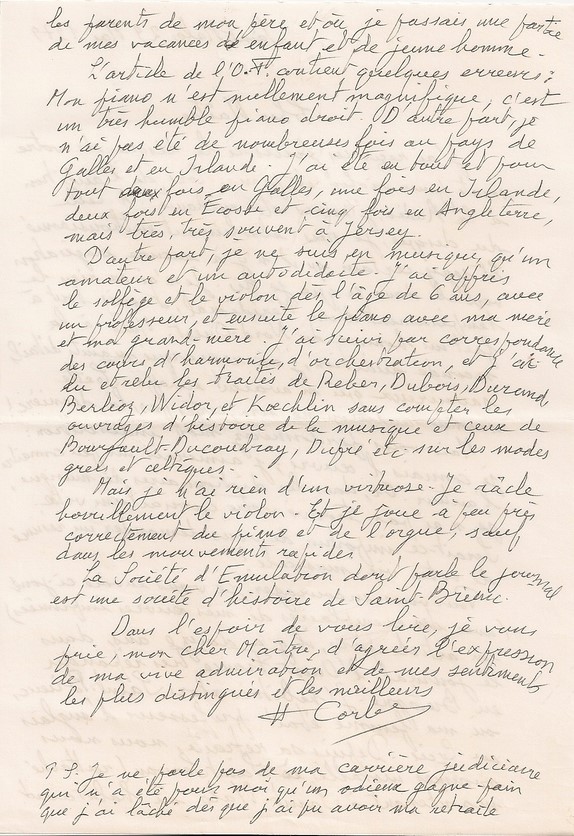 les parents de mon père et où je passais une partie
de mes vacances d'enfant et de jeune homme.
L'article de l'O.F. contient quelques erreurs :
Mon piano n'est nullement magnifique, c'est
un très humble piano droit. D'autre part, je
n'ai pas été de nombreuses fois au pays de
Galles et en Irlande. J'ai été en tout et pour
tout deux fois en Galles, une fois en Irlande,
deux fois en Ecosse et cinq fois en Angleterre,
mais très, très souvent à Jersey.
D'autre part, je ne suis, en musique, qu'un
amateur et un autodidacte. J'ai appris
le solfège et le violon dès l'âge de 6 ans, avec
un professeur, et ensuite le piano avec ma mère
et ma grand-mère. J'ai suivi par correspondance
des cours d'harmonie, d'orchestration, et j'ai
lu et relu les traités de Reber, Dubois, Durand
Berlioz, Widor, et Koechlin sans compter les
ouvrages d'histoire de la musique et ceux de
Bourgault-Ducoudray, Dupré etc. sur les modes
grecs et celtiques.
Mais je n'ai rien d'un virtuose. Je râcle
horriblement le violon. Et je joue à peu près
correctement du piano et de l'orgue, sauf
dans les mouvements rapides
La Société d'Emulation dont parle le journal
est une société d'histoire de Saint-Brieuc.
Dans l'espoir de vous lire, je vous
prie, mon cher Maître, d'agréer l'expression
de ma vive admiration et de mes sentiments
les plus distingués et les meilleurs
H Corbe
P.S. Je ne parle pas de ma carrière judiciaire
qui n'a été pour moi qu'un odieux gagne-pain
que j'ai lâché dès que j'ai pu avoir ma retraite